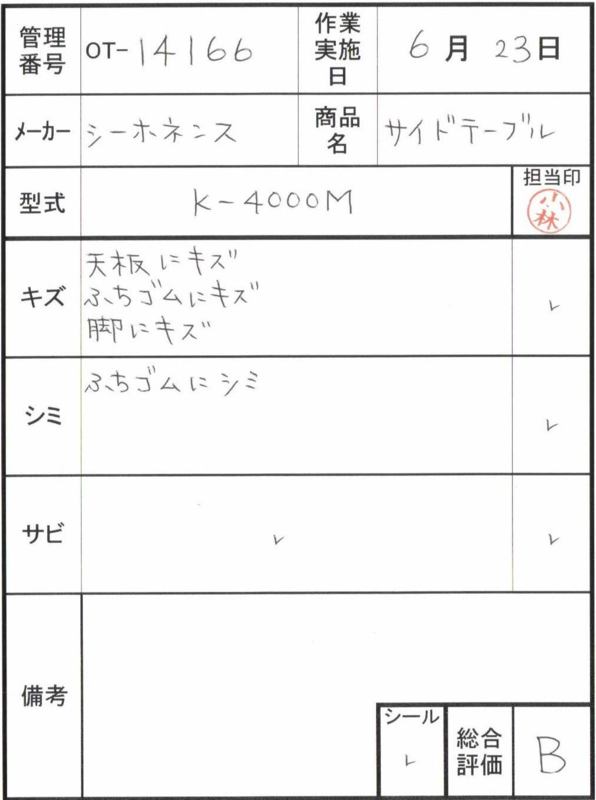 管理番号 OT-14166 作業実施日 6月23日
メーカー シーホネンス 商品名 サイドテーブル
型式 K-4000M 担当印 小林
キズ 天板にキズ
ふちゴムにキズ
脚にキズ ✓
シミ ふちゴムにシミ ✓
サビ ✓ ✓
備考
シール ✓ 総合評価 B